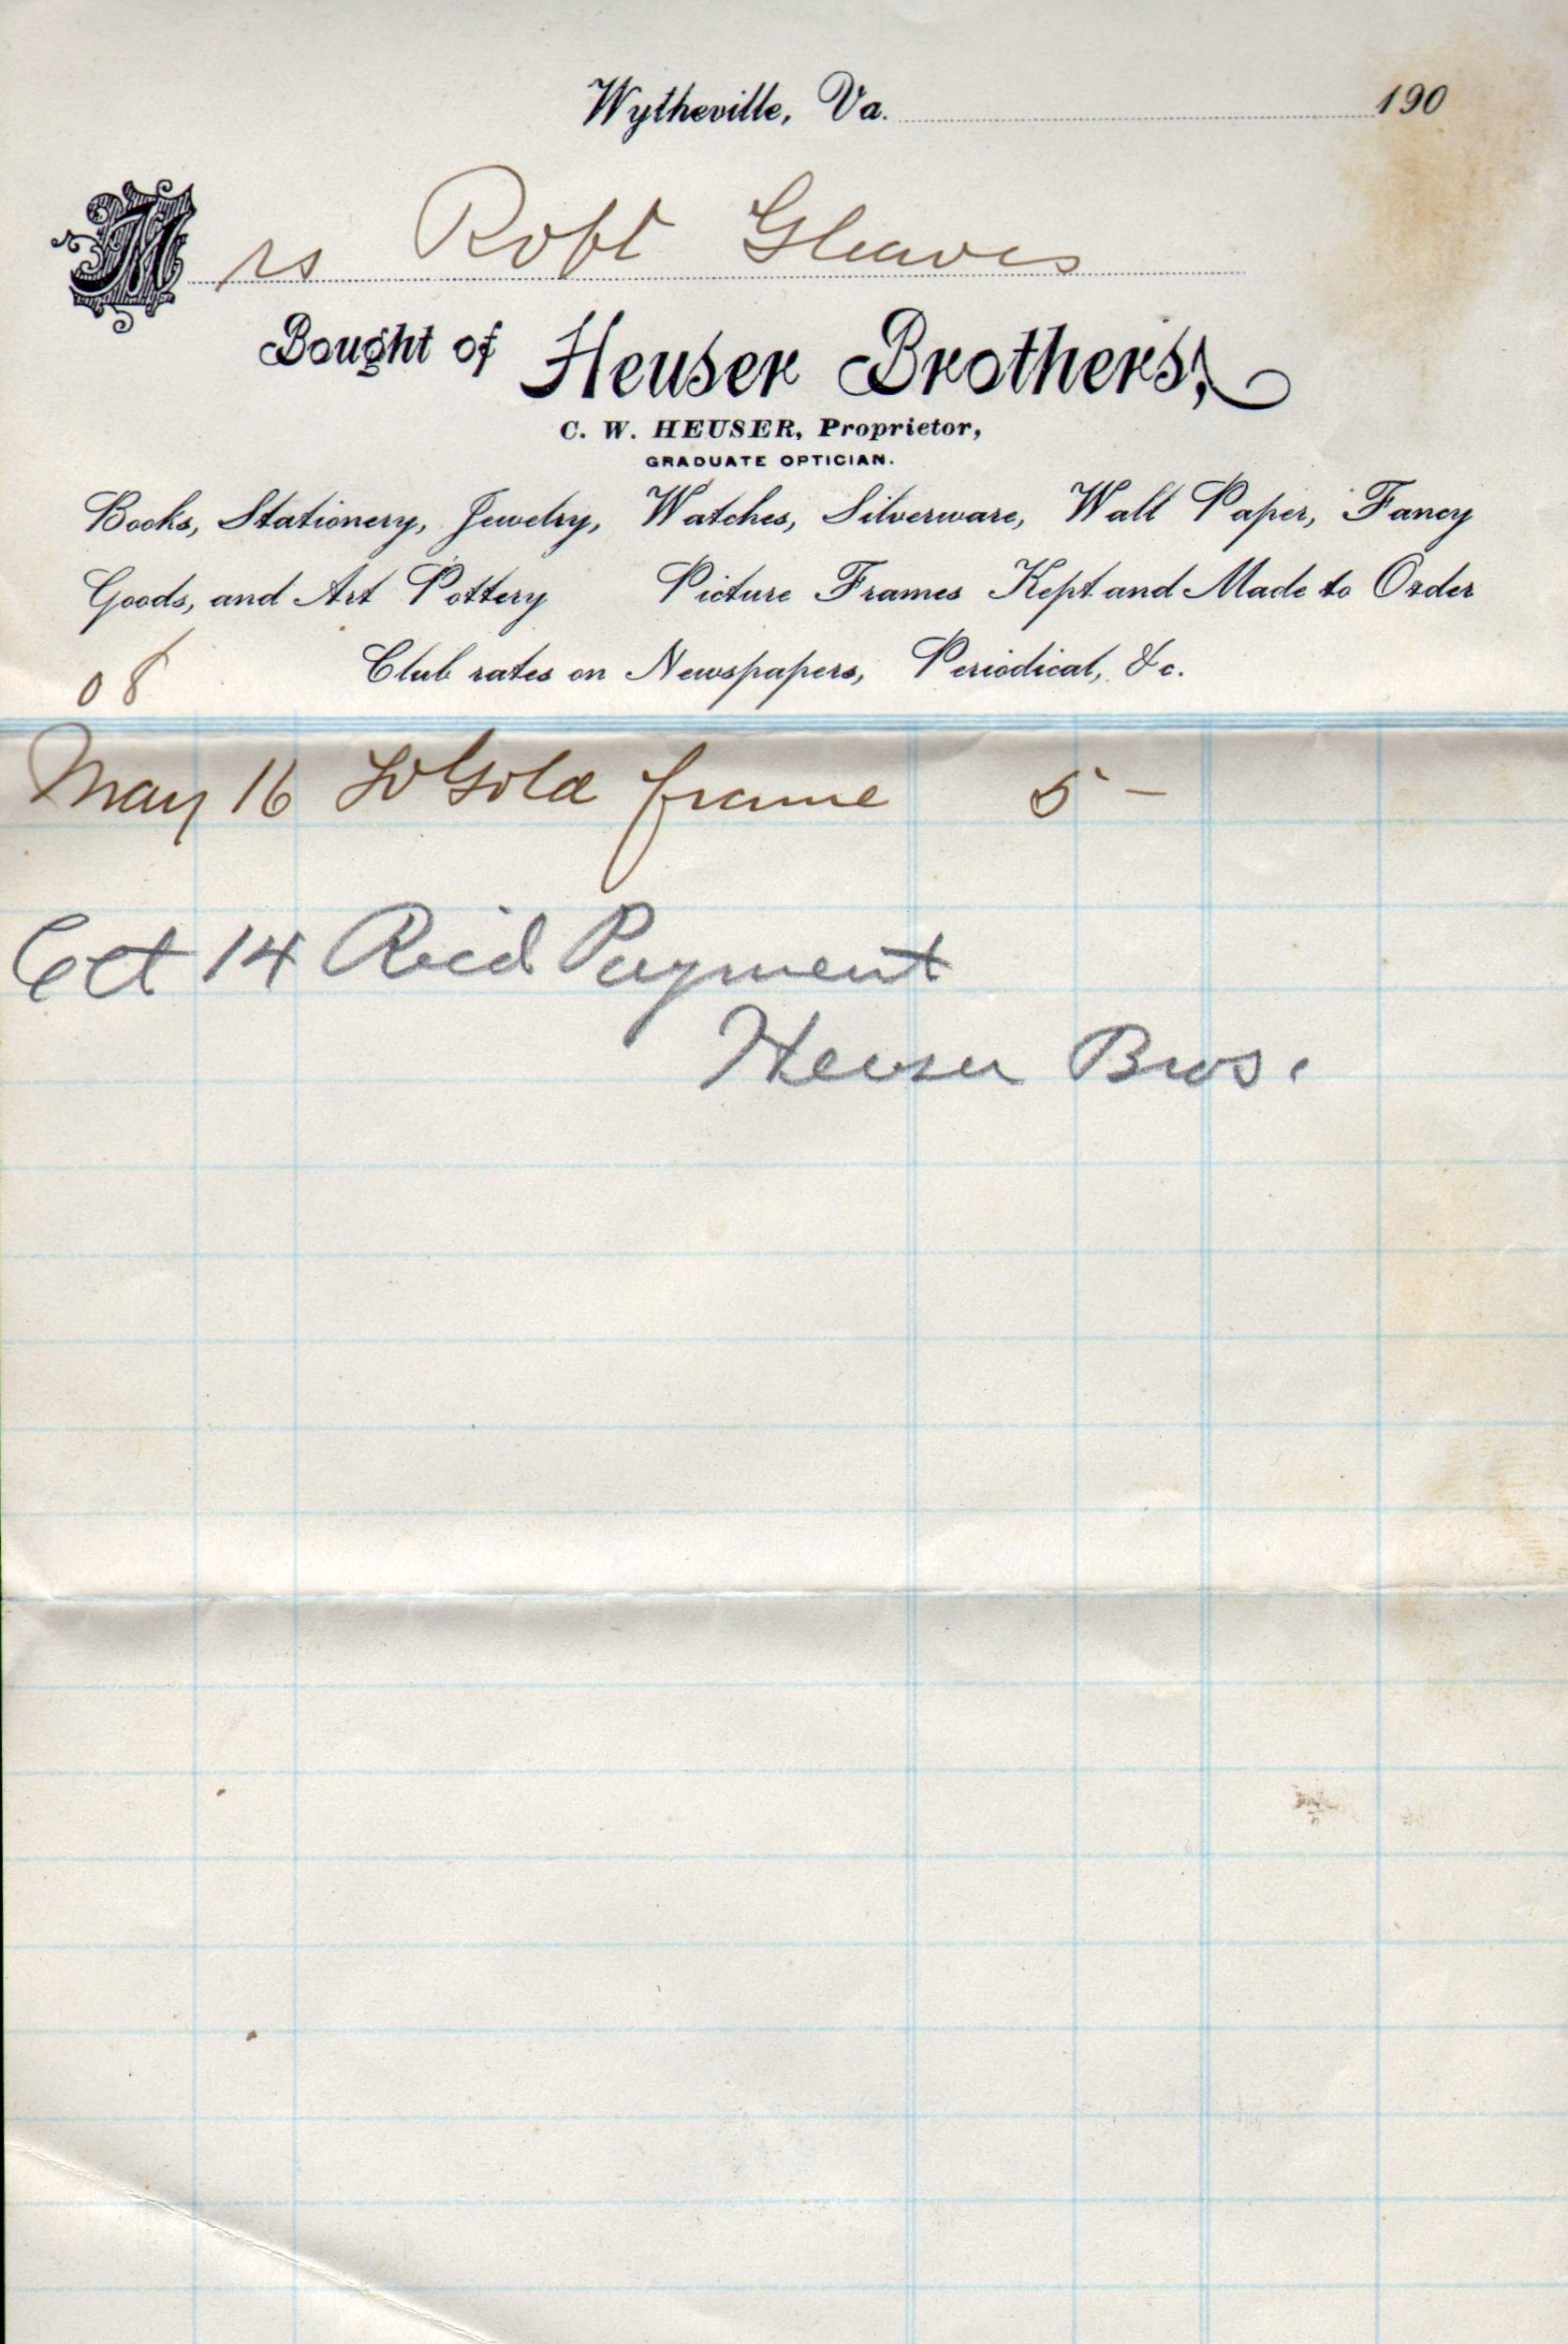 Wytheville, Va. 190
Mrs Robt Gleaves
Bought of Heuser Brothers,
C. W. HEUSER, Proprietor,
GRADUATE OPTICIAN.
Books, Stationery, Jewelry, Watches, Silverware, Wall Paper, Fancy
Goods, and Art Pottery Picture Frames Kept and Made to Order
Club rates on Newspapers, Periodical, &c.
08
May 16 To Gold frame 5 -
Oct 14 Recd Payment
Heuser Bros.